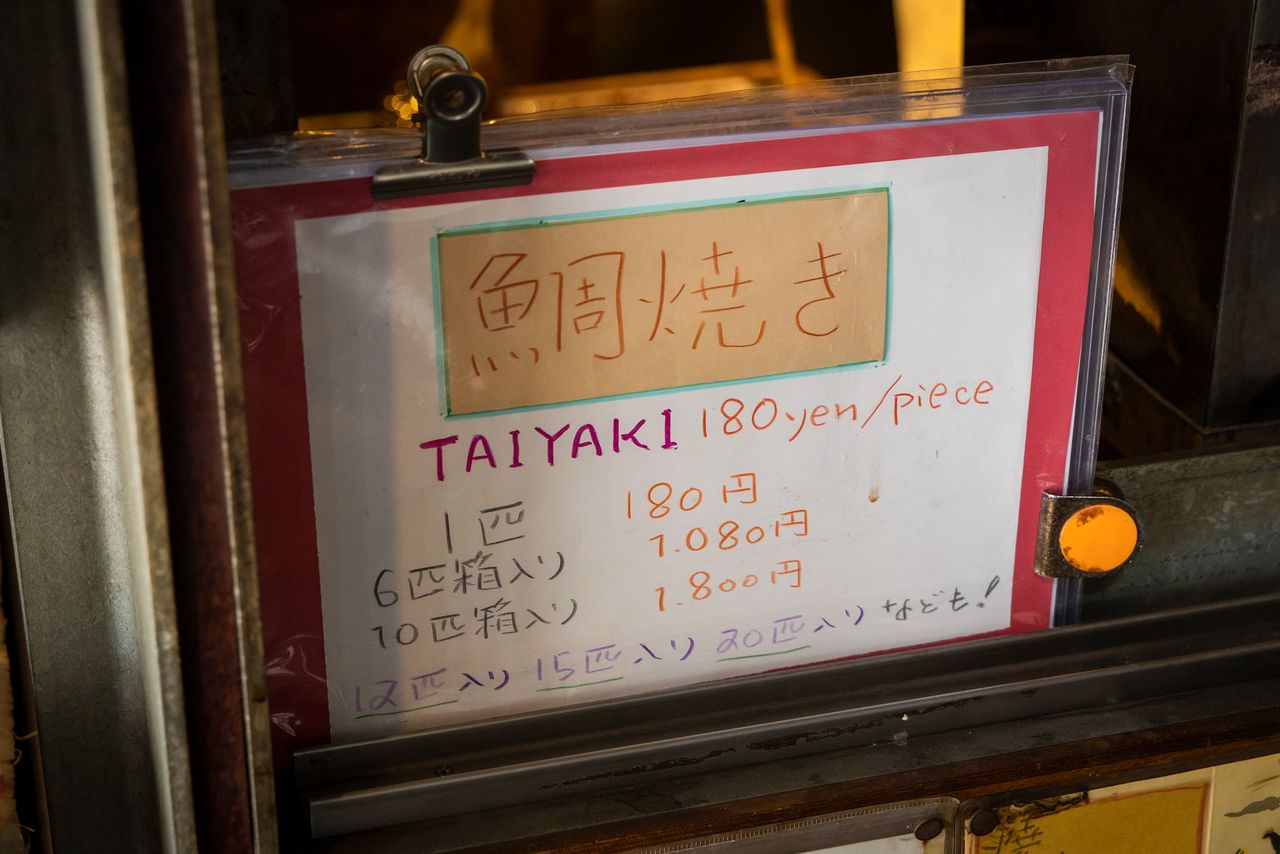 鯛焼き
TAIYAKI 180yen/piece
1匹 180円
6匹箱入り 1.080円
10匹箱入り 1.800円
12匹入り 15匹入り 20匹入り なども!